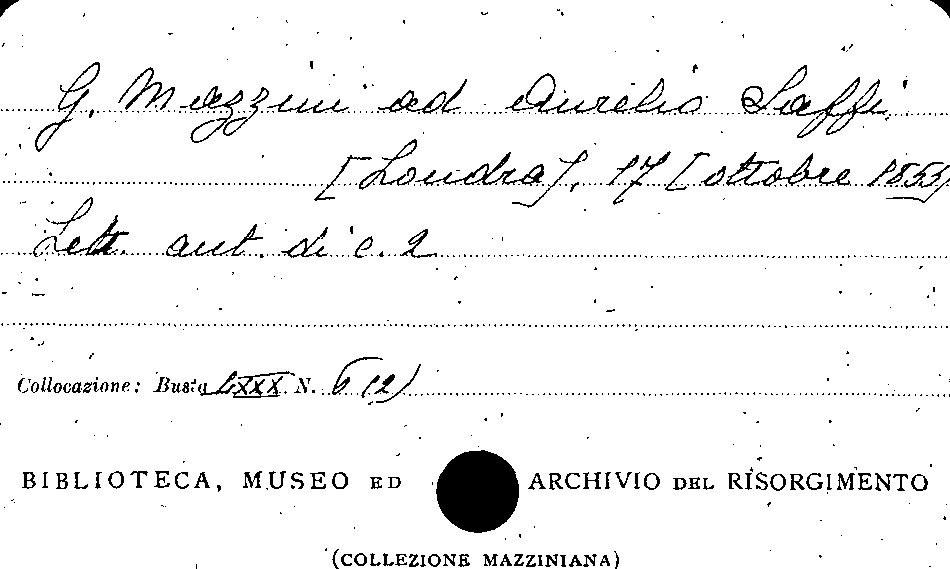 G. Mazzini ad Aurelio Saffi
[Londra], 17 [ottobre 1853]
Lett. aut. di c. 2
Collocazione: Busta LXXX N. 6 (2)
BIBLIOTECA, MUSEO ED ARCHIVIO DEL RISORGIMENTO
(COLLEZIONE MAZZINIANA)